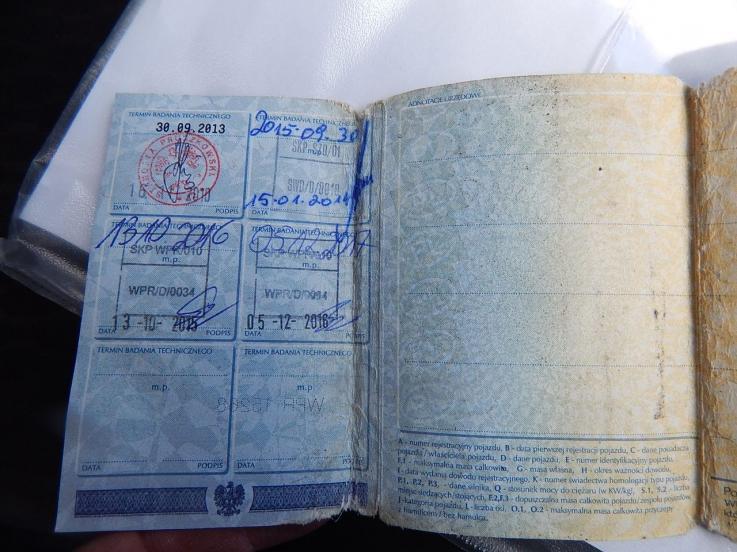 TERMIN BADANIA TECHNICZNEGO
30.09.2013
DATA PODPIS
TERMIN BADANIA TECHNICZNEGO
2015-09-30
SKP SZD/01
m.p.
SWD/D/0010
15.01.2014
DATA
TERMIN BADANIA TECHNICZNEGO
13.10.2016
SKP WPR/010
m.p.
WPR/D/0034
13-10-2015
DATA PODPIS
TERMIN BADANIA TECHNICZNEGO
05.12.2017
m.p.
05-12-2016
DATA PODPIS
TERMIN BADANIA TECHNICZNEGO
m.p.
DATA PODPIS
TERMIN BADANIA TECHNICZNEGO
m.p.
DATA
ADNOTACJE URZĘDOWE
A - numer rejestracyjny pojazdu, B - data pierwszej rejestracji pojazdu, C - dane posiadacza
pojazdu / właściciela pojazdu, D - dane pojazdu, E - numer identyfikacyjny pojazdu,
F.1 - maksymalna masa całkowita, G - masa własna, H - okres ważności dowodu,
I - data wydania dowodu rejestracyjnego, K - numer świadectwa homologacji typu pojazdu,
P.1, P.2, P.3, - dane silnika, Q - stosunek mocy do ciężaru (w KW/kg), S.1, S.2 - liczba
miejsc siedzących/stojących, F.2, F.3 - dopuszczalna masa całkowita zespołu pojazdów
J - kategoria pojazdu, L - liczba osi, O.1, O.2 - maksymalna masa całkowita przyczepy
z hamulcem / bez hamulca.